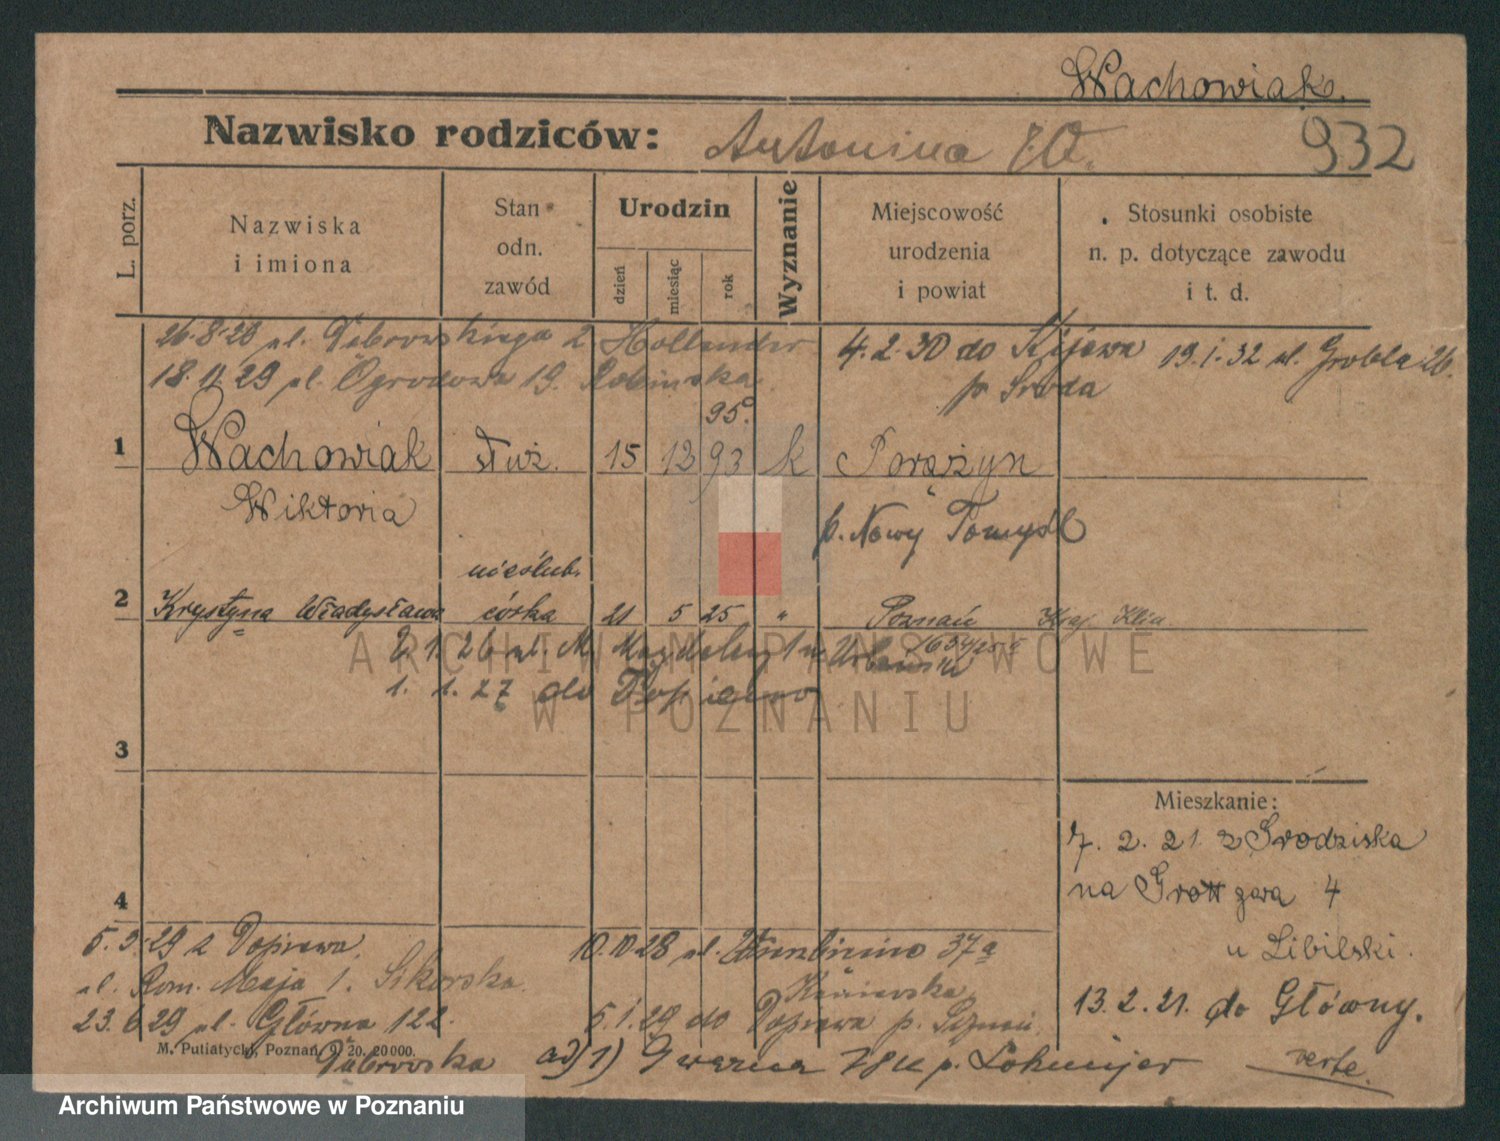 Wachowiak.
Nazwisko rodziców: Antonina
932
L. porz.
Nazwiska i imiona
Stan odn. zawód
Urodzin
dzień
miesiąc
rok
Wyznanie
Miejscowość urodzenia i powiat
Stosunki osobiste n. p. dotyczące zawodu i t. d.
26.8.28 ul. Dąbrowskiego 2 Hollender
4.2.30 do Kijewa
19.1.32 ul. Grobla 26.
18.11.29 ul. Ogrodowa 19. Robinska
p. Środa
95.
1 Wachowiak służ. 15 12 93 k Porążyn
Wiktoria
p. Nowy Tomyśl
nieślub.
2 Krystyna Władysława córka 21 5 25 " Poznań
2.1.26 ul. M. Magdaleny 1
1.1.27 do
ARCHIWUM PAŃSTWOWE
W POZNANIU
3
Mieszkanie:
7. 2. 21. z Grodziska
na 4
4
u Libilski.
13.2.21. do Główny.
5.3.29 z Dopiewa
10.10.28 ul. 37a
ul. Maja 1. Sikorska.
Kaniewska
23.6.29 ul. Główna 122.
5.1.29 do Dopiewa p.
M. Putiatycki, Poznań 9. 20. 20000.
Dąbrowska
ad) 1) Gwarna p.
verte.
Archiwum Państwowe w Poznaniu